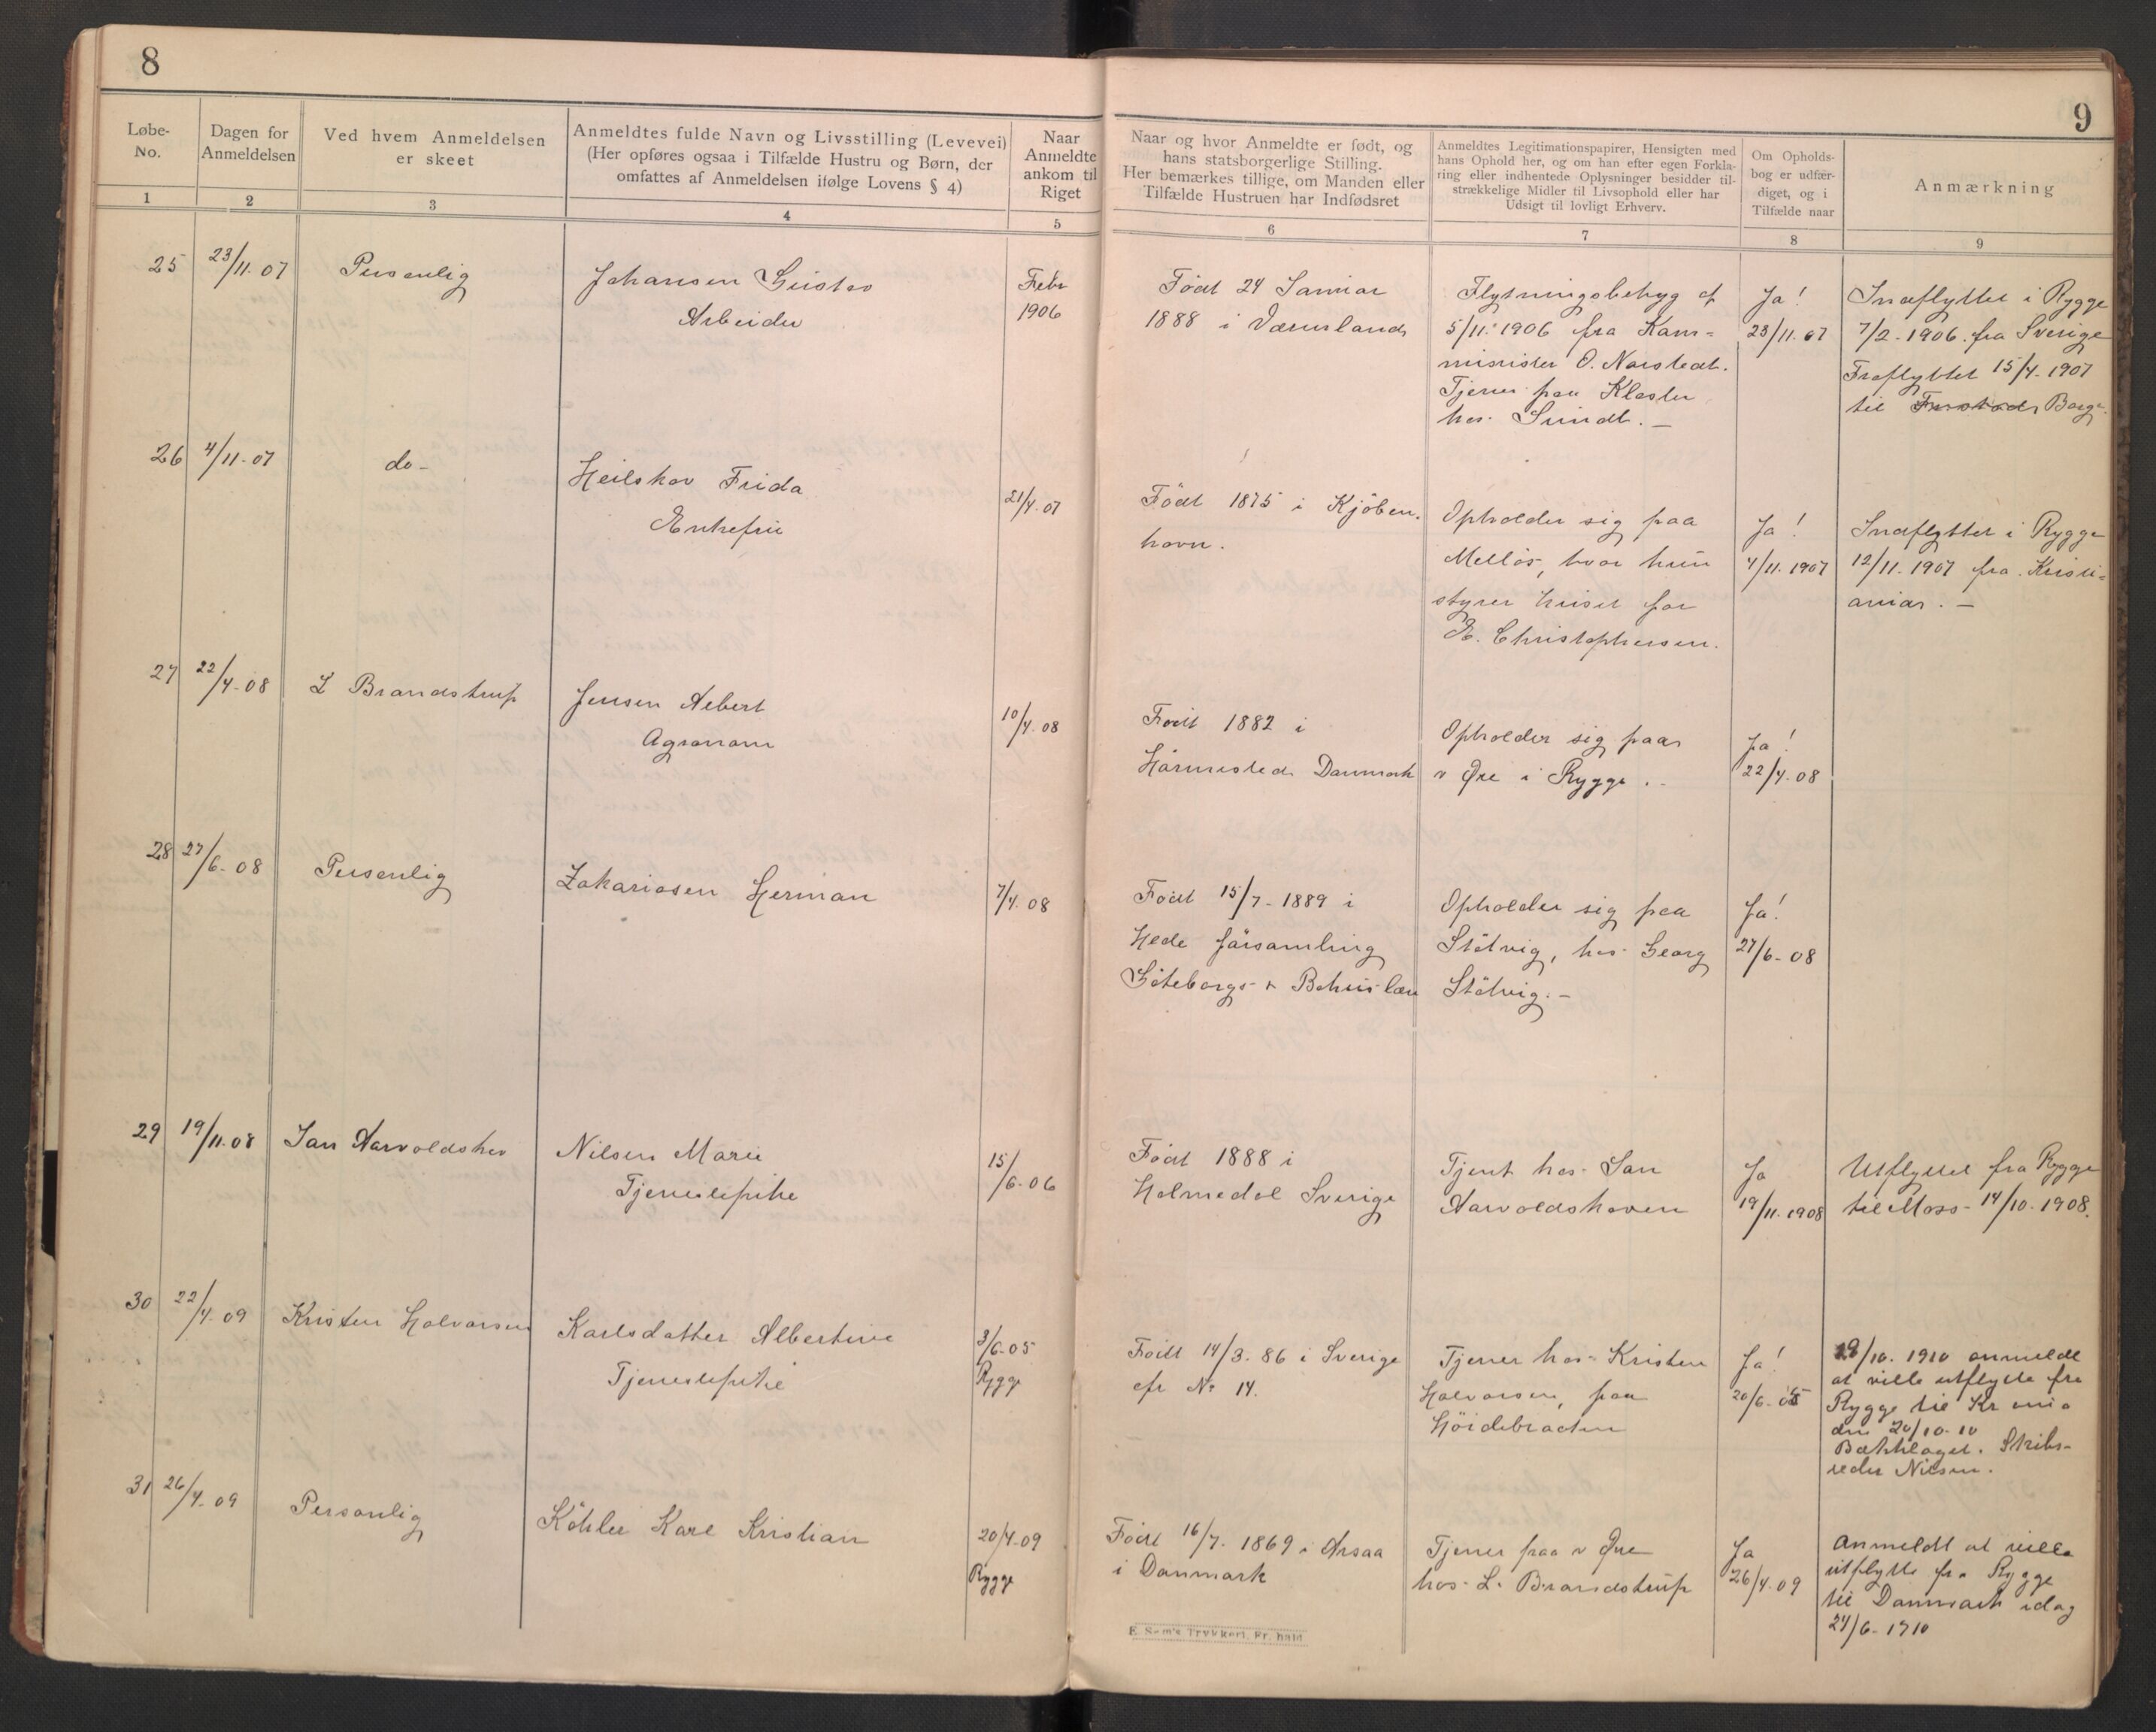 8
Løbe-
No.
Dagen for
Anmeldelsen
Ved hvem Anmeldelsen
er skeet
Anmeldtes fulde Navn og Livsstilling (Levevei)
(Her opføres ogsaa i Tilfælde Hustru og Børn, der
omfattes af Anmeldelsen ifølge Lovens § 4)
Naar
Anmeldte
ankom til
Riget
1
2
3
4
5
25
23/11. 07
Personlig
Johansen Gustav
Arbeider
Febr
1906
26
4/11-07
do-
Heilskov Frida
Enkefru
21/4.07
27
22/4-08
L Brandstrup
Jensen Albert
Agronom
10/4.08
28
27/6-08
Personlig
Zakariasen Herman
7/4.08
29
19/11.08
Jan Aarvoldshov
Nilsen Marie
Tjenestepike
15/6-06
30
22/4-09
Kristen Halvorsen
Karlsdatter Albertine
Tjenestepike
3/6-05
Rygge
31
26/4-09
Personlig
Köhler Karl Kristian
20/4-09
Rygge
9
Naar og hvor Anmeldte er født, og
hans statsborgerlige Stilling.
Her bemærkes tillige, om Manden eller
Tilfælde Hustruen har Indfødsret
Anmeldtes Legitimationspapirer, Hensigten med
hans Ophold her, og om han efter egen Forkla-
ring eller indhentede Oplysninger besidder til-
strækkelige Midler til Livsophold eller har
Udsigt til lovligt Erhverv.
Om Opholds-
bog er udfær-
diget, og i
Tilfælde naar
Anmærkning
6
7
8
9
Født 24 Januar
1888 i Værmland
Flytningsbetyg af
5/11. 1906 fra Kom-
minister O. Norstedt.
Tjener paa Kloster
hos Sundt. —
Ja!
23/11. 07
Indflyttet i Rygge
7/2-1906. fra Sverige
Fraflyttet 15/4-1907
til Borge.
Født 1875 i Kjöben-
havn.
Opholder sig paa
Mellös, hvor hun
styrer huset for
E. Christophersen.
Ja!
4/11.1907
Indflyttet i Rygge
12/11-1907 fra Kristi-
ania. —
Født 1882 i
Hörmested Danmark
Opholder sig paa
v Øre i Rygge.
Ja!
22/4.08
Født 15/7-1889 i
Hede församling
Göteborgs- & Bohuslæn
Opholder sig paa
Stötvig, hos Georg
Stötvig. —
Ja!
27/6-08
Født 1888 i
Holmedal Sverige
Tjent hos Jan
Aarvoldshoven
Ja
19/11.1908
Utflyttet fra Rygge
til Moss 14/10-1908.
Född 14/3. 86 i Sverige
cfr No 14.
Tjener hos Kristen
Halvorsen, paa
Höidebraaten
Ja!
20/6-05
19/10. 1910 anmeldt
at ville utflytte fra
Rygge til Kr ania
den 20/10-10
Bækkelaget. Skibs-
reder Nilsen.
Født 16/7-1869 i Arsaa
i Danmark
Tjener paa v Øre
hos L. Brandstrup
Ja
26/4.09
Anmeldt at ville
utflytte fra Rygge
til Danmark idag
24/6-1910
E. Sem's Trykkeri, Fr.hald